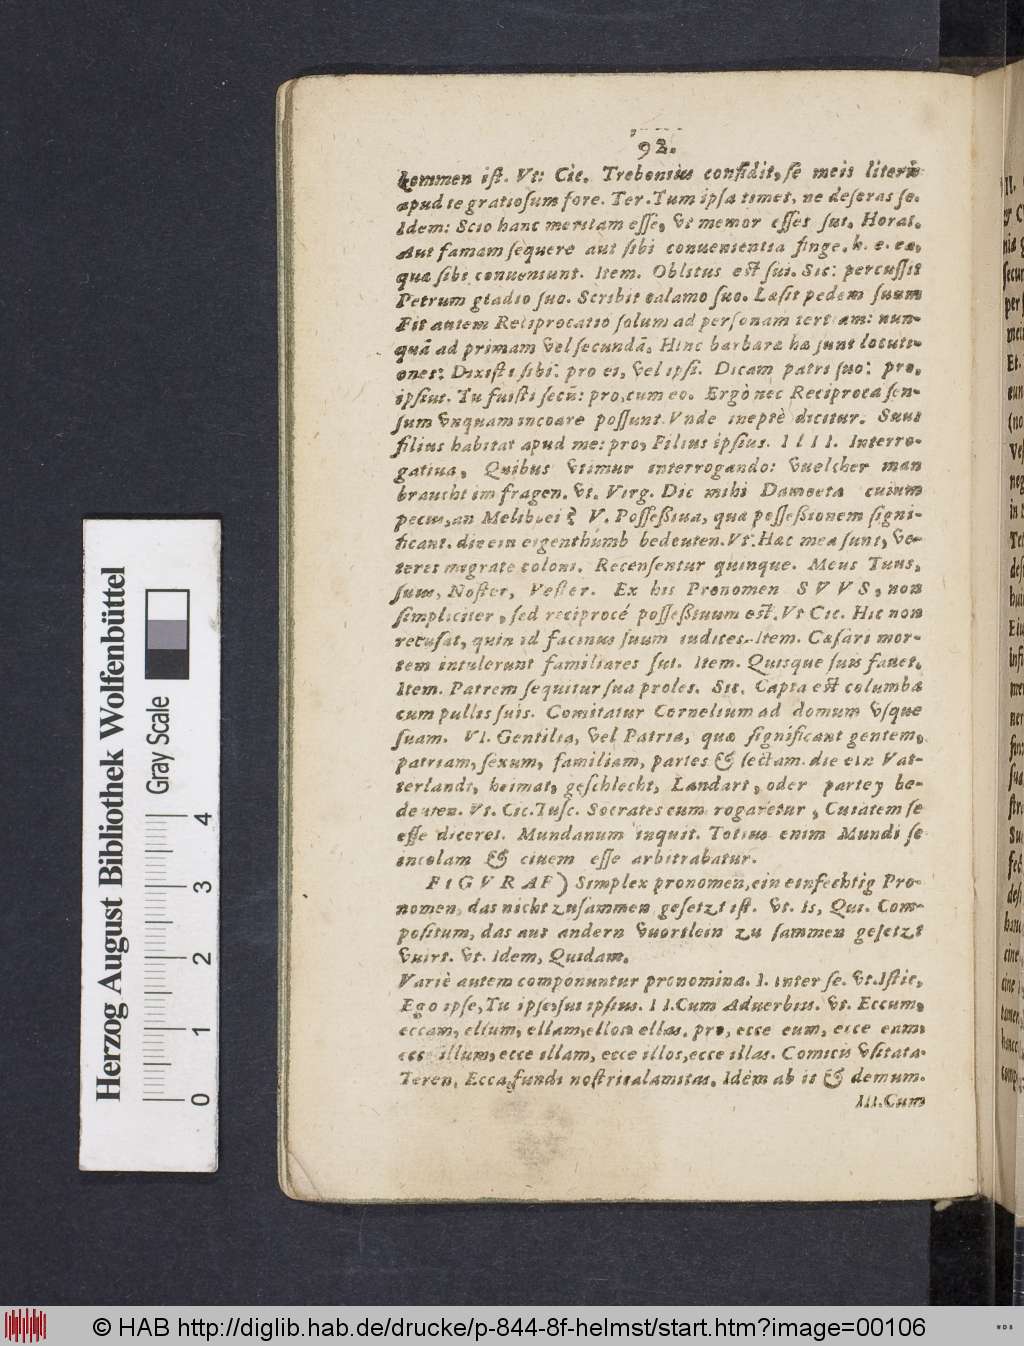 92.
kommen ist. Vt: Cic. Trebonius confidit, se meis literis
apud te gratiosum fore. Ter. Tum ipsa timet, ne deseras se.
Idem: Scio hanc meritam esse, vt memor esses sui. Horat.
Aut famam sequere aut sibi conuenientia finge. h. e. ea,
quæ sibi conueniunt. Item. Oblitus est sui. Sic: percussit
Petrum gladio suo. Scribit calamo suo. Læsit pedem suum
Fit autem Reciprocatio solum ad personam tertiam: nun-
quā ad primam vel secundā. Hinc barbaræ hæ sunt locuti-
ones: Dixisti sibi: pro ei, vel ipsi. Dicam patri suo: pro,
ipsius. Tu fuisti secū: pro, cum eo. Ergò nec Reciproca sen-
sum vnquam incoare possunt. Vnde ineptè dicitur. Suus
filius habitat apud me: pro, Filius ipsius. IIII. Interro-
gatiua, Quibus vtimur interrogando: vvelcher man
braucht im fragen. vt. Virg. Dic mihi Damoeta cuium
pecus, an Meliboei? V. Possessiua, quæ possessionem signi-
ficant. die ein eigenthumb bedeuten. Vt. Hæc mea sunt, ve-
teres migrate coloni. Recensentur quinque. Meus Tuus,
suus, Noster, Vester. Ex his Pronomen SVVS, non
simpliciter, sed reciprocé possessiuum est. Vt Cic. Hic non
recusat, quin id facinus suum iudices. Item. Cæsari mor-
tem intulerunt familiares sui. Item. Quisque suis fauet.
Item. Patrem sequitur sua proles. Sic. Capta est columba
cum pullis suis. Comitatur Cornelium ad domum vsque
suam. VI. Gentilia, vel Patria, quæ significant gentem,
patriam, sexum, familiam, partes & sectam. die ein Vat-
terlandt, heimat, geschlecht, Landart, oder partey be-
deuten. Vt. Cic. Tusc. Socrates cum rogaretur, Cuiatem se
esse diceret. Mundanum inquit. Totius enim Mundi se
incolam & ciuem esse arbitrabatur.
FIGVRAE) Simplex pronomen, ein einfechtig Pro-
nomen, das nicht zusammen gesetzt ist. vt. Is, Qui. Com-
positum, das aus andern vvortlein zu sammen gesetzt
vvirt. vt. Idem, Quidam.
Variè autem componuntur pronomina. I. inter se. vt. Istic,
Ego ipse, Tu ipse, sui ipsius. II. Cum Aduerbiis. vt. Eccum,
eccam, ellum, ellam, ellos ellas. pro, ecce eum, ecce eam,
ecce illum, ecce illam, ecce illos, ecce illas. Comicis vsitata.
Teren. Ecca, fundi nostri calamitas. Idem ab is & demum.
III. Cum
Herzog August Bibliothek Wolfenbüttel
Gray Scale
0 1 2 3 4
© HAB http://diglib.hab.de/drucke/p-844-8f-helmst/start.htm?image=00106